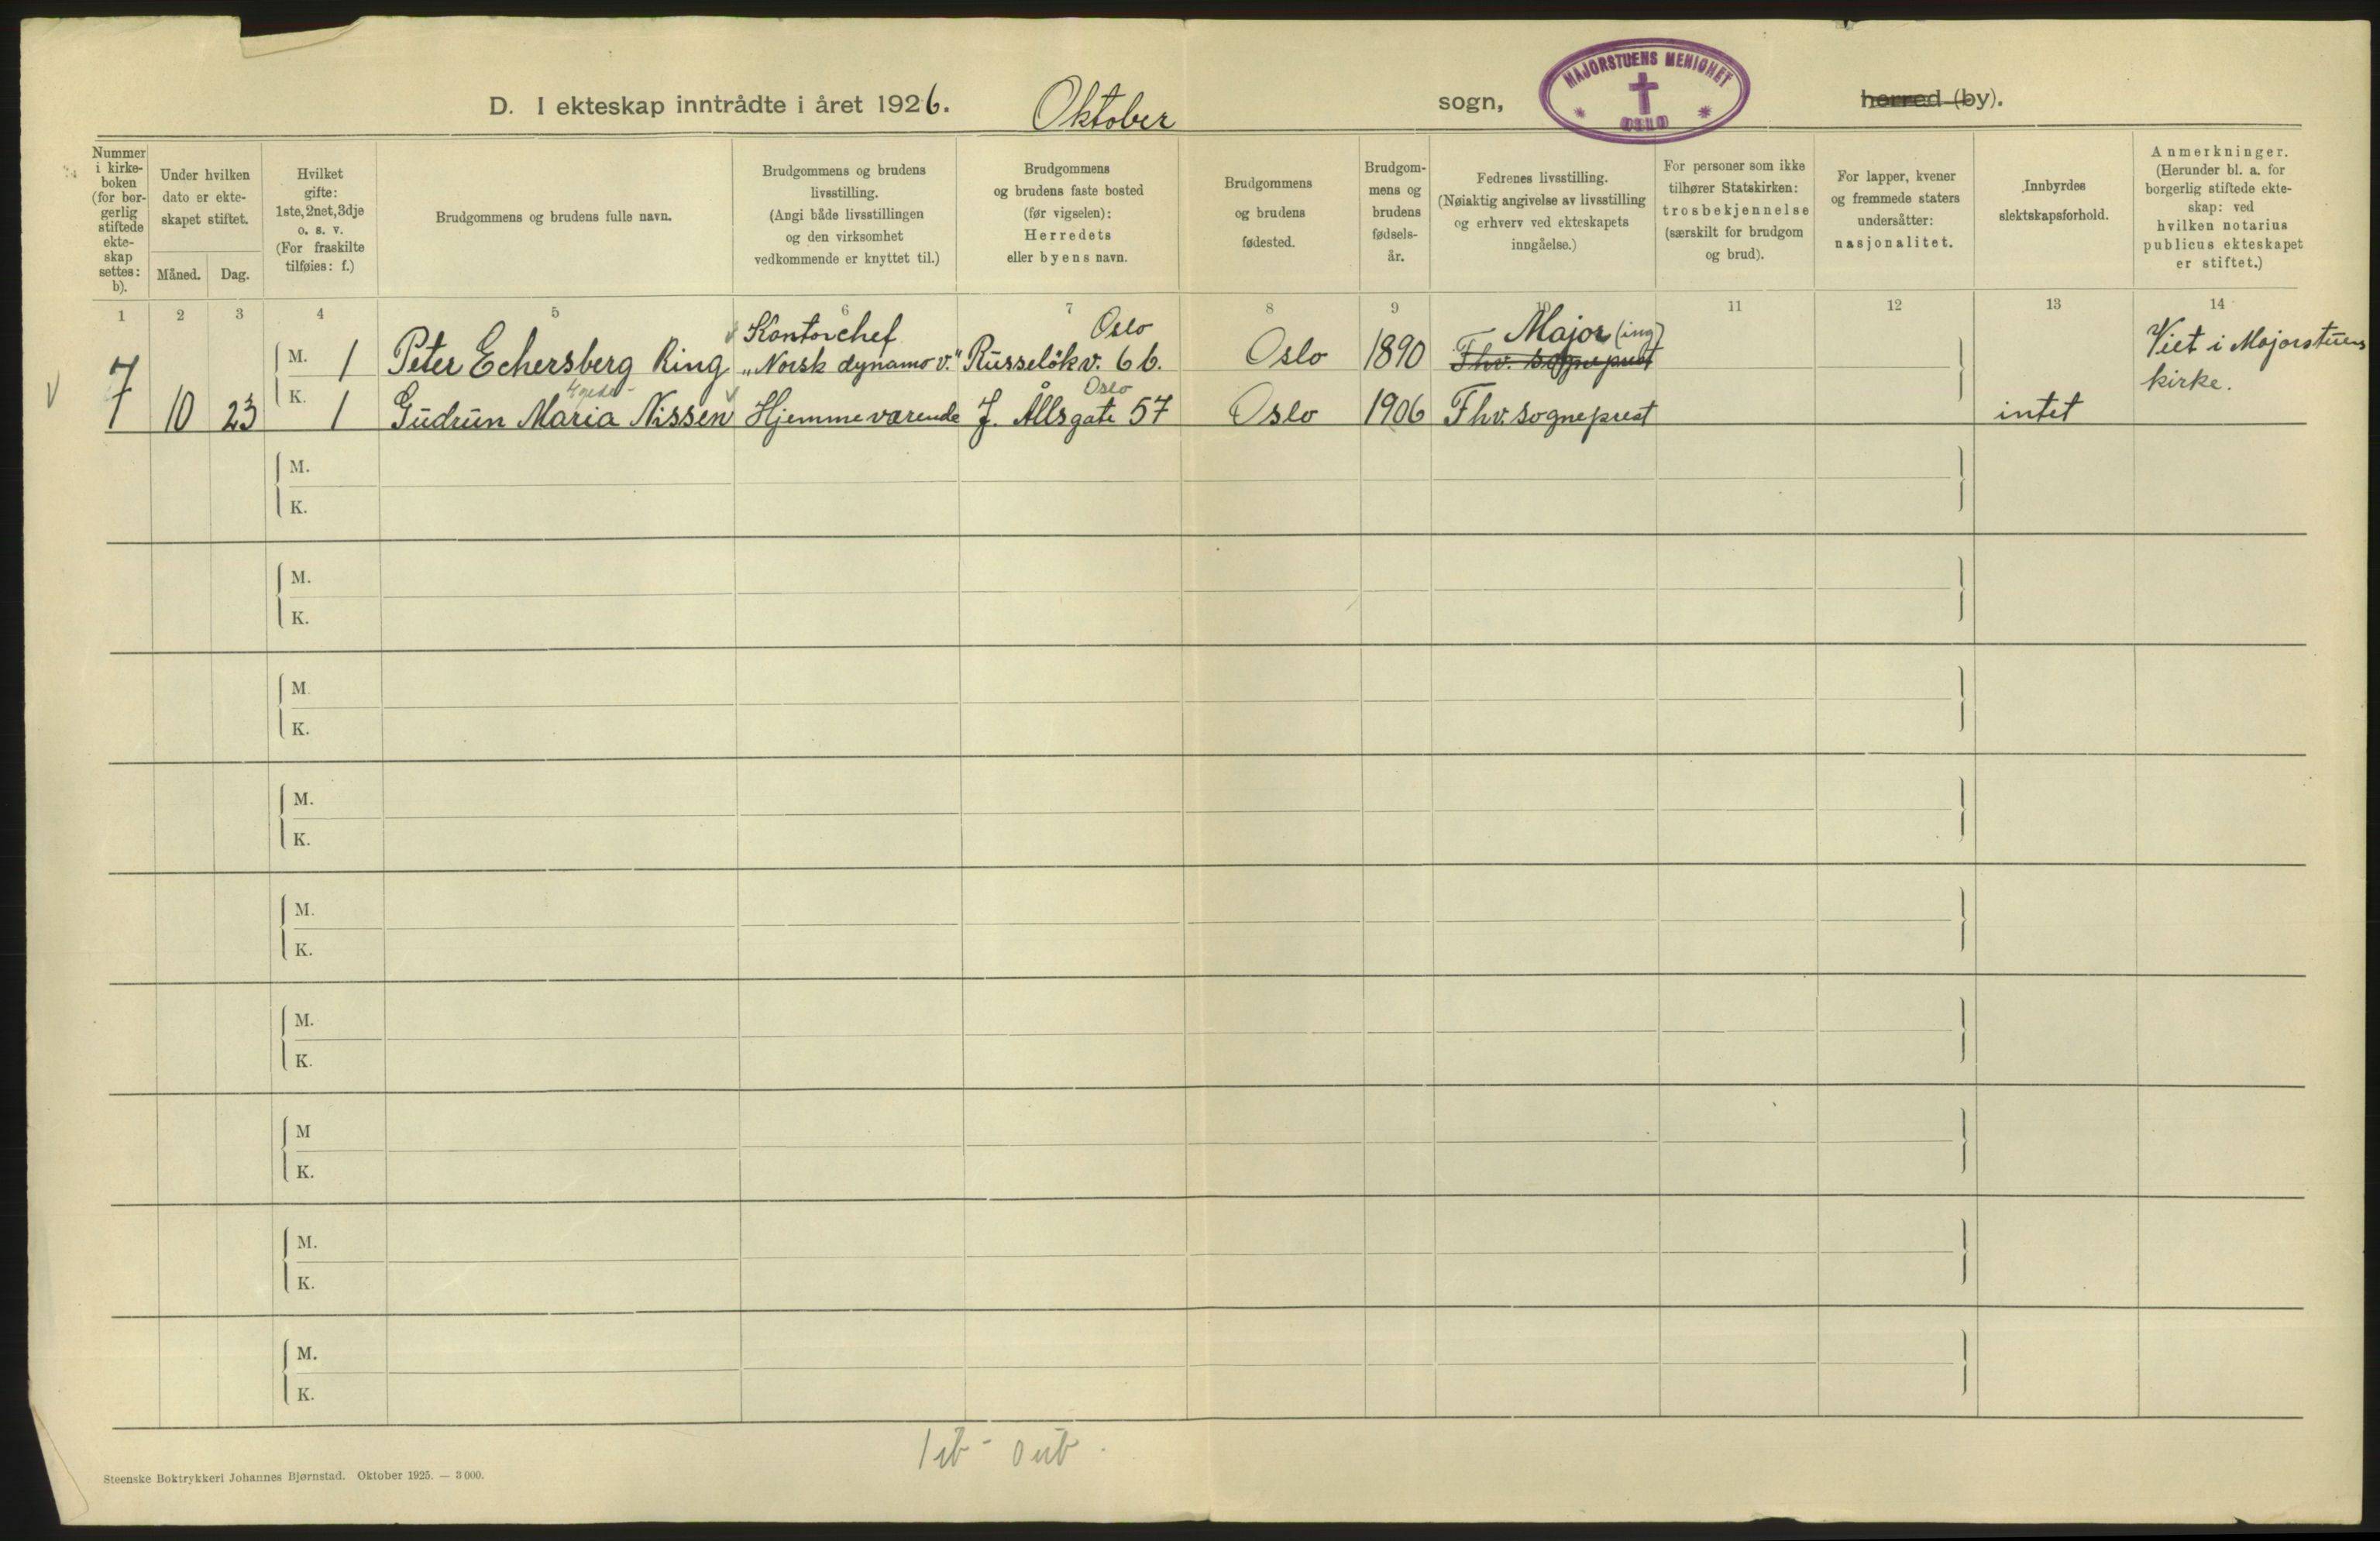 D. I ekteskap inntrådte i året 1926. Oktober sogn, herred (by).
MAJORSTUENS MENIGHET
OSLO
Nummer i kirke-boken (for bor-gerlig stiftede ekte-skap settes: b).
Under hvilken dato er ekte-skapet stiftet.
Måned. Dag.
Hvilket gifte: 1ste, 2net, 3dje o. s. v. (For fraskilte tilføies: f.)
Brudgommens og brudens fulle navn.
Brudgommens og brudens livsstilling. (Angi både livsstillingen og den virksomhet vedkommende er knyttet til.)
Brudgommens og brudens faste bosted (før vigselen): Herredets eller byens navn.
Brudgommens og brudens fødested.
Brudgom-mens og brudens fødsels-år.
Fedrenes livsstilling. (Nøiaktig angivelse av livsstilling og erhverv ved ekteskapets inngåelse.)
For personer som ikke tilhører Statskirken: trosbekjennelse (særskilt for brudgom og brud).
For lapper, kvener og fremmede staters undersåtter: nasjonalitet.
Innbyrdes slektskapsforhold.
Anmerkninger. (Herunder bl. a. for borgerlig stiftede ekte-skap: ved hvilken notarius publicus ekteskapet er stiftet.)
1 2 3 4 5 6 7 8 9 10 11 12 13 14
Kontorchef Oslo Major (ing) Viet i Majorstuens
7 M. 1 Peter Eckersberg Ring „Norsk dynamo v." Russeløkv. 6 b. Oslo 1890 Fhv. sogneprest kirke.
Oslo
7 10 23 K. 1 Gudrun Maria Nissen Hjemmeværende J. Ållsgate 57 Oslo 1906 Fhv. sogneprest intet
M.
K.
M.
K.
M.
K.
M.
K.
M.
K.
M.
K.
M
K.
M.
K.
M.
K.
Steenske Boktrykkeri Johannes Bjørnstad. Oktober 1925. — 3 000.